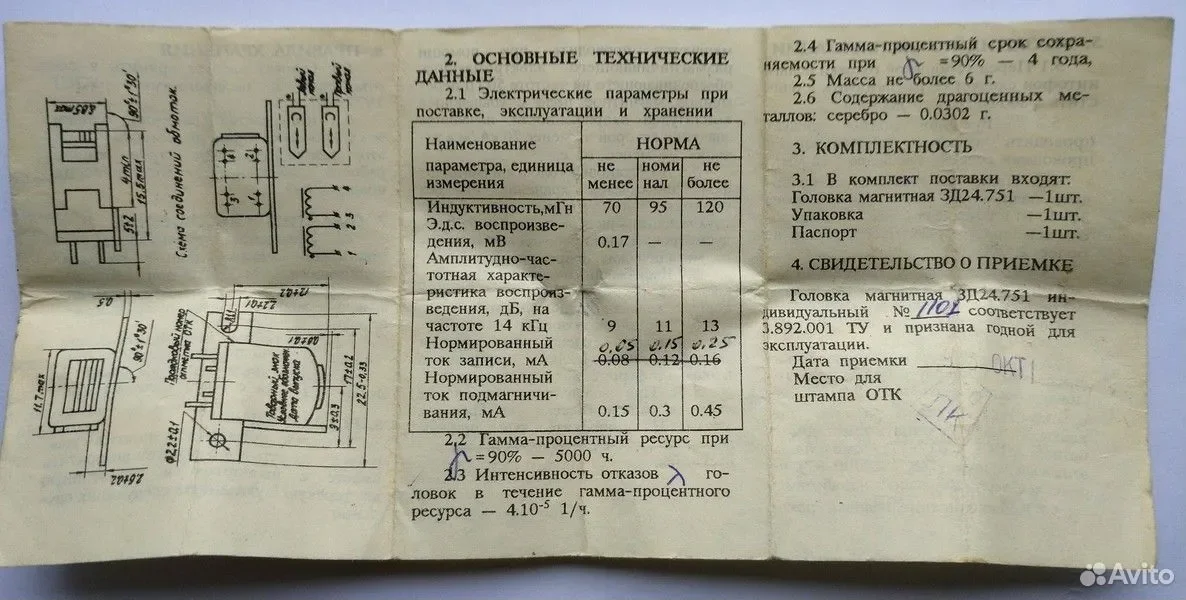 8,85 max
90°±1°30'
4 min
15,6 max
5±2
Схема соединений обмоток.
Левый
канал
Правый
канал
1 2 3 4
0,5
90°±1°30'
11,7 max
2,6±0,2
Порядковый номер
штампа ОТК
Ø2,2±0,1
2,2±0,1
12±0,2
Товарный знак
Дата выпуска
9±0,3
17±0,2
22,5-0,33
2. ОСНОВНЫЕ ТЕХНИЧЕСКИЕ
ДАННЫЕ
2.1 Электрические параметры при
поставке, эксплуатации и хранении
Наименование НОРМА
параметра, единица не номи не
измерения менее нал более
Индуктивность,мГн 70 95 120
Э.д.с. воспроизве-
дения, мВ 0.17 — —
Амплитудно-час-
тотная характе-
ристика воспроиз-
ведения, дБ, на
частоте 14 кГц 9 11 13
Нормированный 0.05 0.15 0.25
ток записи, мА 0.08 0.12 0.16
Нормированный
ток подмагничи-
вания, мА 0.15 0.3 0.45
2.2 Гамма-процентный ресурс при
γ =90% — 5000 ч.
2.3 Интенсивность отказов λ го-
ловок в течение гамма-процентного
ресурса — 4.10⁻⁵ 1/ч.
2.4 Гамма-процентный срок сохра-
няемости при γ =90% — 4 года,
2.5 Масса не более 6 г.
2.6 Содержание драгоценных ме-
таллов: серебро — 0.0302 г.
3. КОМПЛЕКТНОСТЬ
3.1 В комплект поставки входят:
Головка магнитная ЗД24.751 —1шт.
Упаковка —1шт.
Паспорт —1шт.
4. СВИДЕТЕЛЬСТВО О ПРИЕМКЕ
Головка магнитная ЗД24.751 ин-
дивидуальный № 1107 соответствует
3.892.001 ТУ и признана годной для
эксплуатации.
Дата приемки ОКТ
Место для
штампа ОТК
Avito